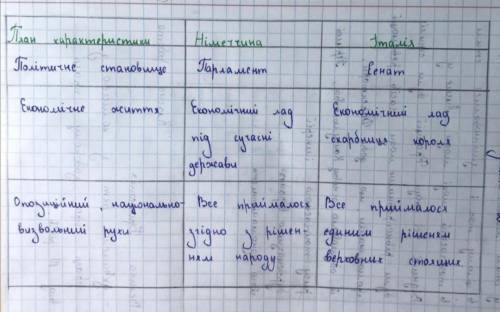 План характеристики Німеччина Італія
Політичне становище Парламент Сенат
Економічне життя Економічний лад Економічний лад
під сучасні скарбниця короля
держави
Опозиційний, національно- Все приймалося Все приймалося
визвольний рухи згідно з рішен- єдиним рішенням
ням народу верховних столиць.